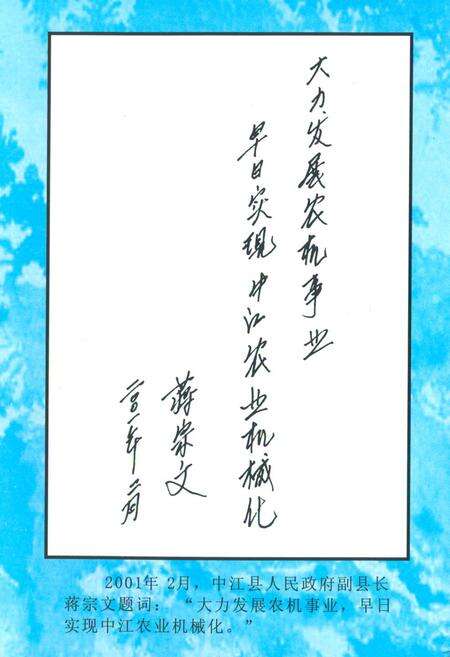 大力发展农机事业
早日实现中江农业机械化
蒋宗文
二〇〇一年二月
2001年2月，中江县人民政府副县长
蒋宗文题词：“大力发展农机事业，早日
实现中江农业机械化。”